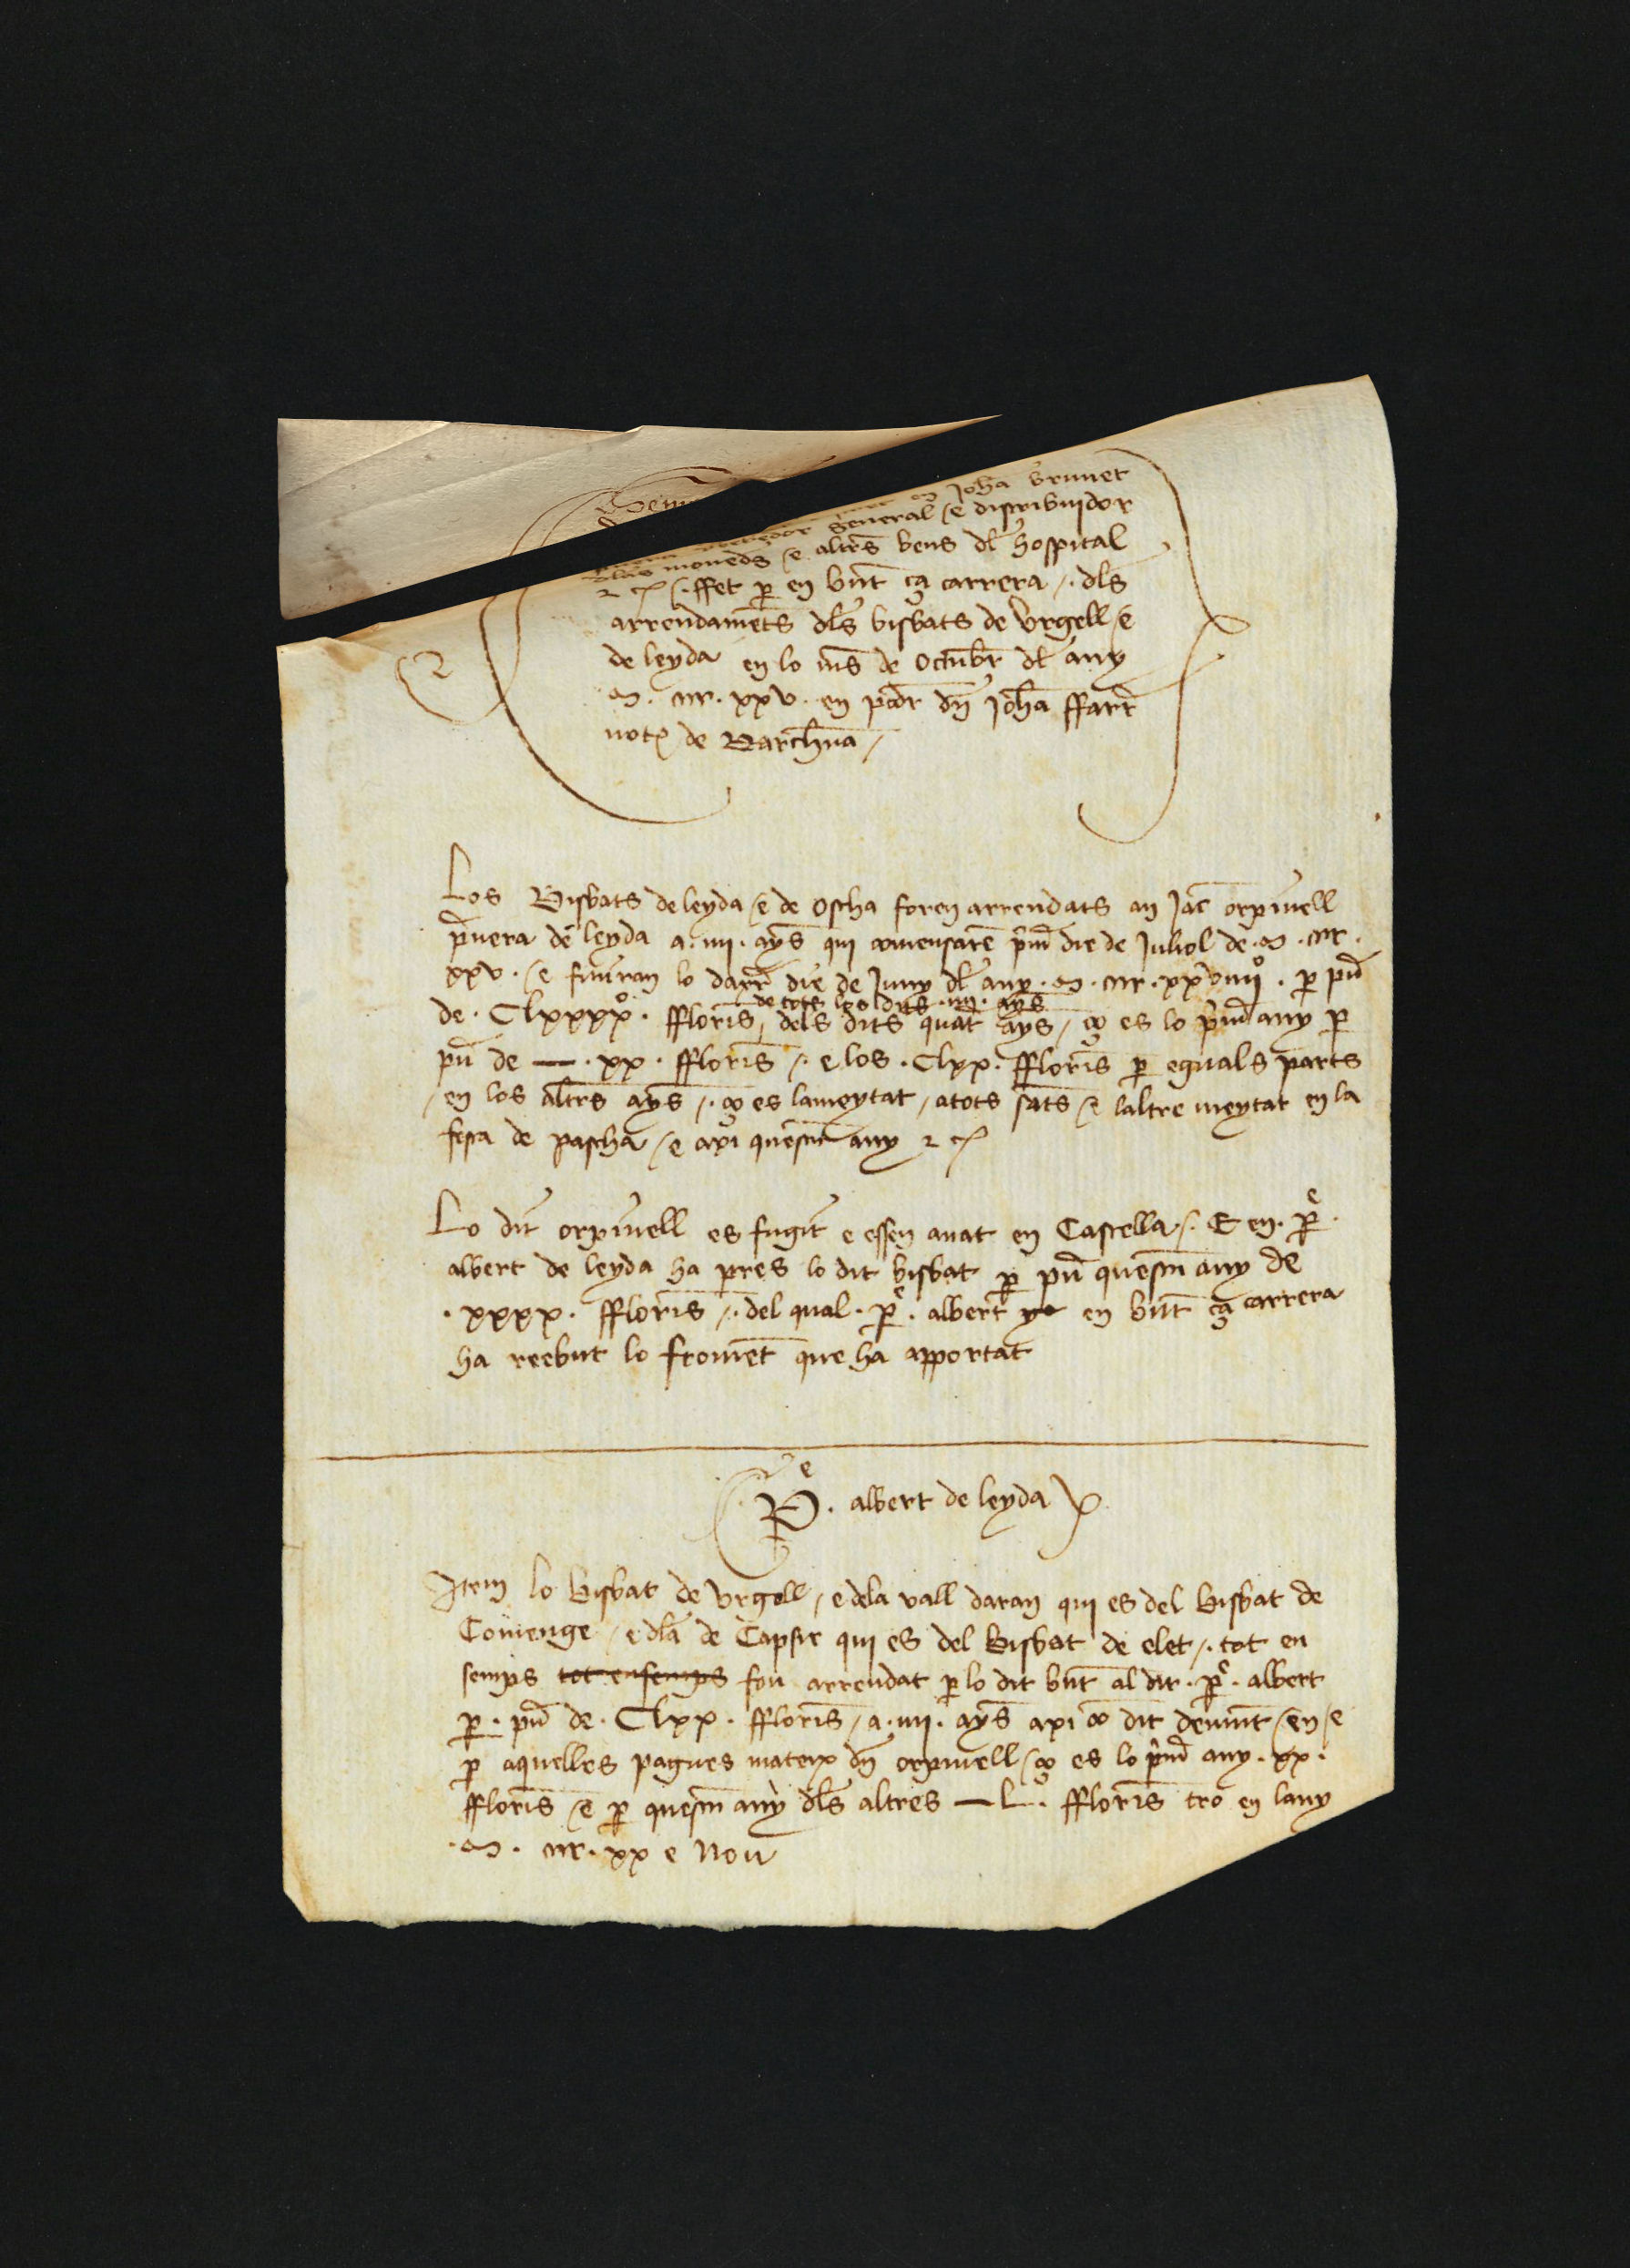 en Johā brunet
general e distribuidor
moneds e altrs bens dl hospital
ffet per en bnt ça carrera dls
arrendamēts dls bisbats de Vrgell e
de leyda en lo ms de Octubr dl any
M. cccc. xxv. en podr dn Johā ffarr
not de Barchna
Los Bisbats de leyda e de Oscha foren arrendats an Jac orpinell
pvera de leyda a .iiii. ays qui comensarē pm die de Juliol de .M. cccc.
xxv. e finiran lo darr die de Juny dl any .M. cccc. xxviiiiº. per pu
de tots los dits .iiii. ays
de .Clxxxxº. fflorīs dels dits quatr ays ço es lo pm any per
pu de — .xx. fflorīs e los .Clxx. fflorīs per eguals parts
en los altrs ays ço es la meytat a tots sats e laltre meytat en la
festa de pascha e axi quescū any etc
Lo dit orpinell es fugit e essen anat en Castella. E en .Pe.
albert de leyda ha pres lo dit bisbat per pu quescū any de
.xxxx. fflorīs del qual .Pe. albert yo en bnt ça carrera
ha reebut lo fromēt que ha apportat
Pe. albert de leyda
Item lo bisbat de Vrgell e dela vall daran qui es del bisbat de
Comenge e dla de Capsir qui es del bisbat de elet tot en
semps tot ensemps fou arrendat per lo dit bnt al dit .Pe. albert
per .pu de .Clxx. fflorīs a .iiii. ays axi co dit demūt en e
per aquelles pagues mateix dn orpinell ço es lo pm any .xx.
fflorīs e per quescū any dls altres — L. fflorīs tro en lany
.M. cccc. xx e nou